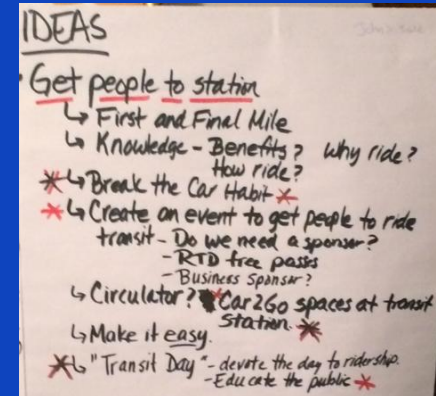 IDEAS
Get people to station
↳ First and Final Mile
↳ Knowledge - Benefits? Why ride?
How ride?
* ↳ Break the Car Habit *
* ↳ Create an event to get people to ride
transit - Do we need a sponsor?
- RTD free passes
- Business Sponsor?
↳ Circulator? * Car2Go spaces at transit
Station. *
↳ Make it easy.
* ↳ "Transit Day" - devote the day to ridership.
- Educate the public *